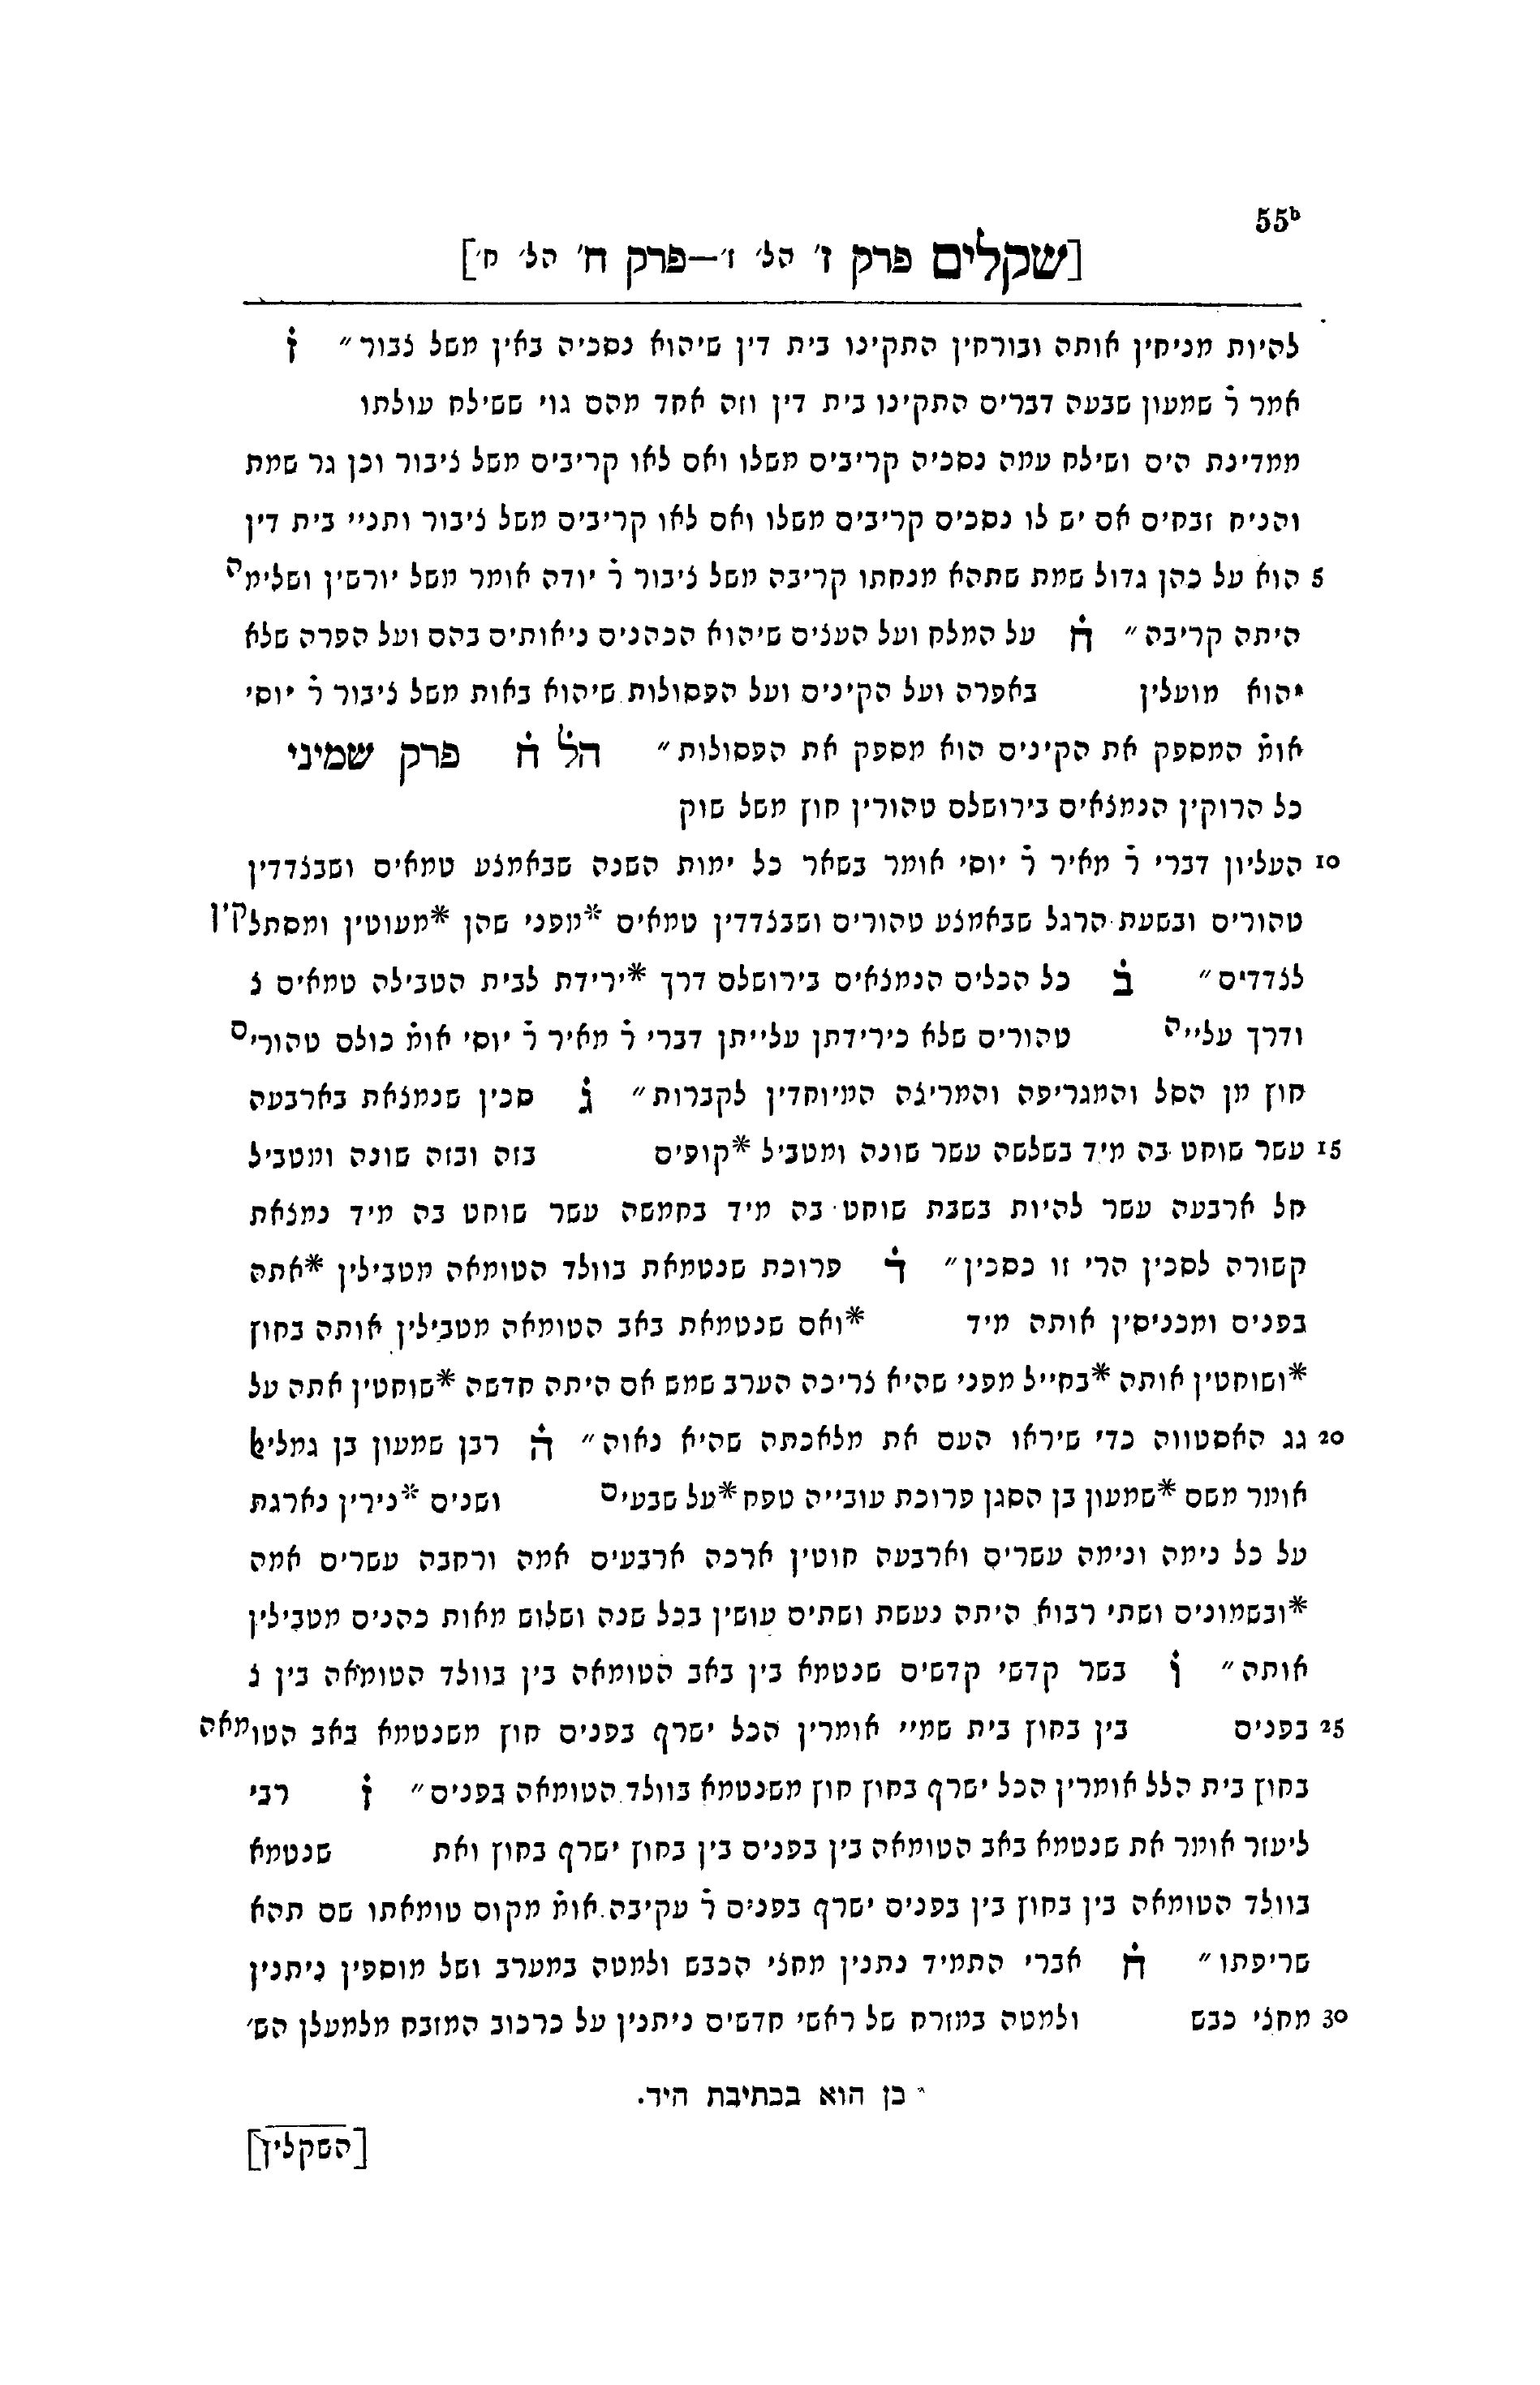 55b
[שקלים פרק ז׳ הל׳ ז׳—פרק ח׳ הל׳ ח׳]
להיות מניחין אותה ובורחין התקינו בית דין שיהוא נסכיה באין משל צבור״ ז֗
אמר ר֗ שמעון שבעה דברים התקינו בית דין וזה אחד מהם גוי ששילח עולתו
ממדינת הים ושילח עמה נסכיה קריבים משלו ואם לאו קריבים משל ציבור וכן גר שמת
והניח זבחים אם יש לו נסכים קריבים משלו ואם לאו קריבים משל ציבור ותניי בית דין
5 הוא על כהן גדול שמת שתהא מנחתו קריבה משל ציבור ר֗ יודה אומר משל יורשין ושלימה
היתה קריבה״ ח֗ על המלח ועל העצים שיהוא הכהנים ניאותים בהם ועל הפרה שלא
*הוא מועלין באפרה ועל הקינים ועל הפסולות שיהוא באות משל ציבור ר֗ יוסי
אומ֗ המספק את הקינים הוא מספק את הפסולות״ הל֗ ח֗ פרק שמיני
כל הרוקין הנמצאים בירושלם טהורין חוץ משל שוק
10 העליון דברי ר֗ מאיר ר֗ יוסי אומר בשאר כל ימות השנה שבאמצע טמאים ושבצדדין
טהורים ובשעת הרגל שבאמצע טהורים ושבצדדין טמאים *מפני שהן *מעוטין ומסתלקין
לצדדים״ ב֗ כל הכלים הנמצאים בירושלם דרך *ירידת לבית הטבילה טמאים צ
ודרך ע
לייה טהורים שלא כירידתן עלייתן דברי ר֗ מאיר ר֗ יוסי אומ֗ כולם טהורים
חוץ מן הסל והמגריפה והמריצה המיוחדין לקברות״ ג֗ סכין שנמצאת בארבעה
15 עשר שוחט בה מיד בשלשה עשר שונה ומטביל *קופיס בזה ובזה שונה ומטביל
חל ארבעה עשר להיות בשבת שוחט בה מיד בחמשה עשר שוחט בה מיד נמצאת
קשורה לסכין הרי זו כסכין״ ד֗ פרוכת שנטמאת בוולד הטומאה מטבילין *אתה
בפנים ומכניסין אותה מיד *ואם שנטמאת באב הטומאה מטבילין אותה בחוץ
*ושוחטין אותה *בחייל מפני שהיא צריכה הערב שמש אם היתה חדשה *שוחטין אתה על
20 גג האסטווה כדי שיראו העם את מלאכתה שהיא נאוה״ ה֗ רבן שמעון בן גמליאל
אומר משם *שמעון בן הסגן פרוכת עובייה טפח *על שבעים ושנים *נירין נארגת
על כל נימה ונימה עשרים וארבעה חוטין ארכה ארבעים אמה ורחבה עשרים אמה
*ובשמונים ושתי רבוא היתה נעשת ושתים עושין בכל שנה ושלוש מאות כהנים מטבילין
אותה״ ו֗ בשר קדשי קדשים שנטמא בין באב הטומאה בין בוולד הטומאה בין צ
25 בפנים בין בחוץ בית שמיי אומרין הכל ישרף בפנים חוץ משנטמא באב הטומאה
בחוץ בית הלל אומרין הכל ישרף בחוץ חוץ משנטמא בוולד הטומאה בפנים״ ז֗ רבי
ליעזר אומר את שנטמא באב הטומאה בין בפנים בין בחוץ ישרף בחוץ ואת שנטמא
בוולד הטומאה בין בחוץ בין בפנים ישרף בפנים ר֗ עקיבה אומ֗ מקום טומאתו שם תהא
שריפתו״ ח֗ אברי התמיד נתנין מחצי הכבש ולמטה במערב ושל מוספין ניתנין
30 מחצי כבש ולמטה במזרח של ראשי חדשים ניתנין על כרכוב המזבח מלמעלן הש׳
* כן הוא בכתיבת היד.
[השקלין]